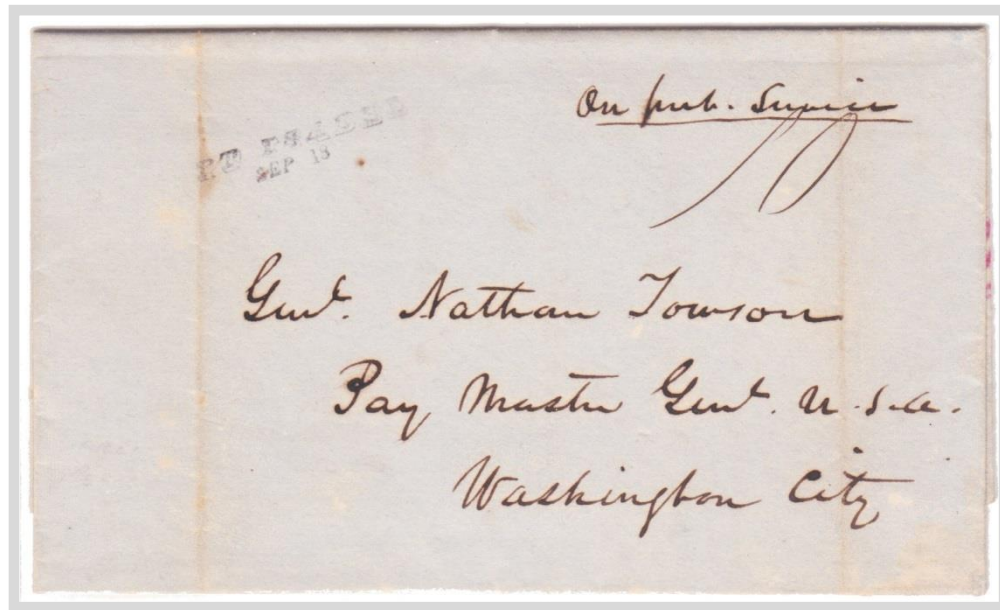 On pub. Service
PT ISABEL
SEP 13
Genl. Nathan Towson
Pay Master Genl. U.S.A.
Washington City